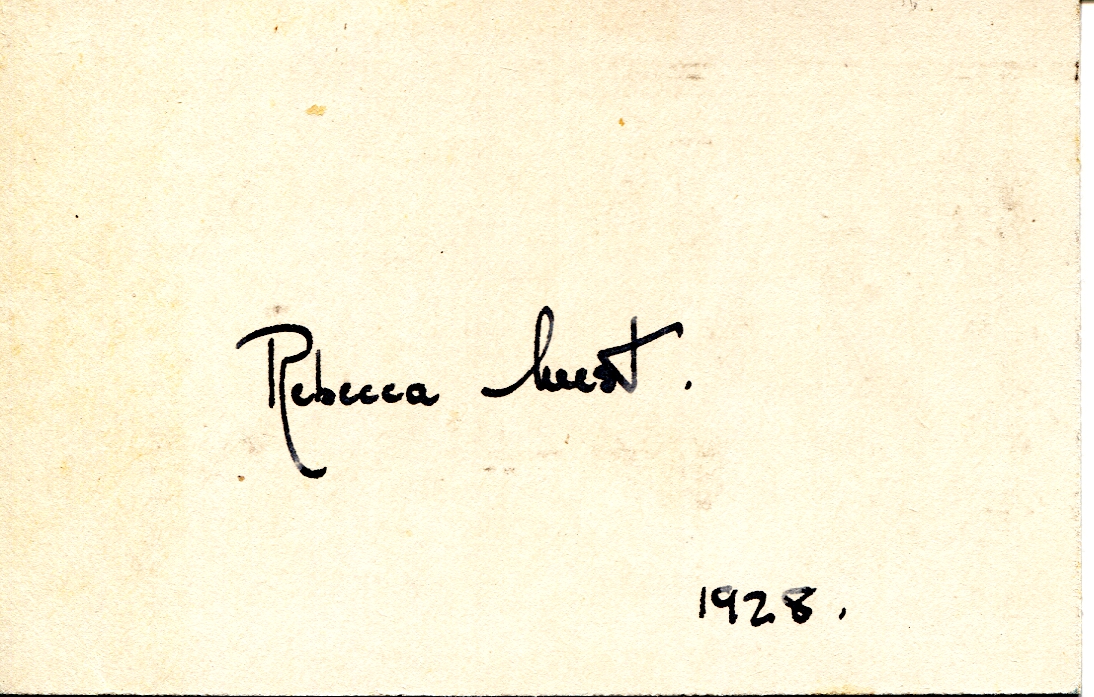 Rebecca West.
1928.